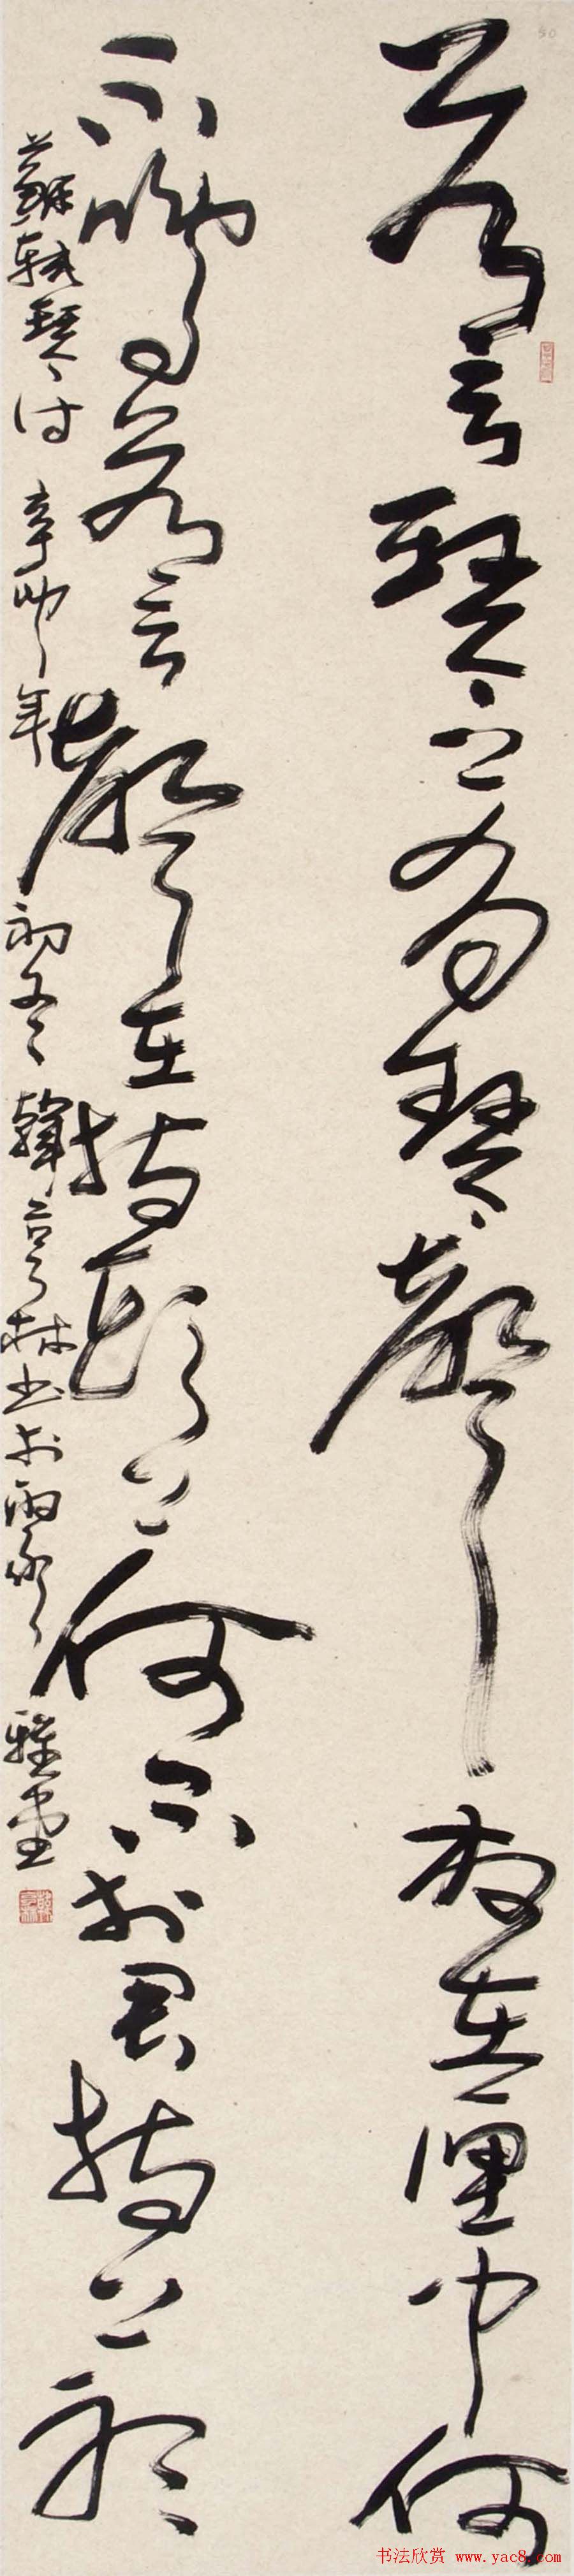 若言琴上有琴聲放在匣中何
不鳴若言聲在指頭上何不於君指上聽
蘇軾琴詩 辛卯年初冬 韓亨林書於雅堂
书法欣赏 www.yac8.com